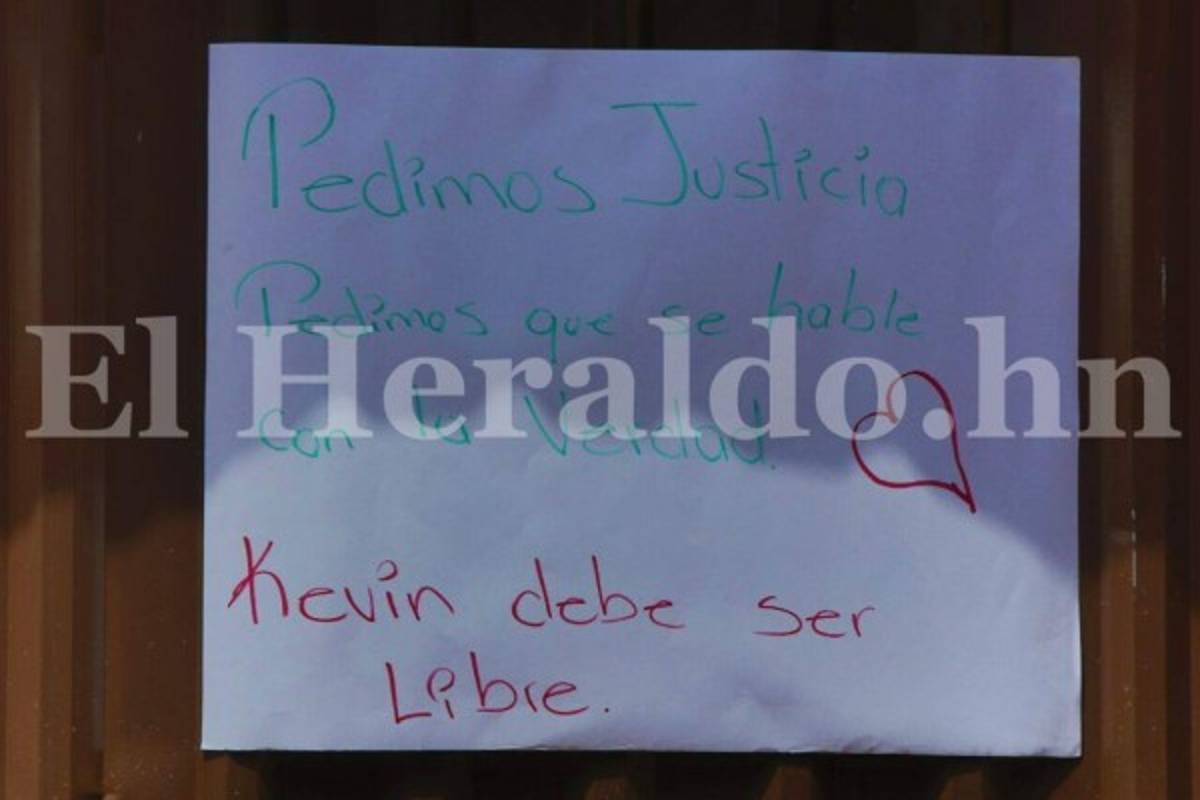 Pedimos Justicia
Pedimos que se hable
El Heraldo.hn
con la Verdad.
Kevin debe ser
Libre.